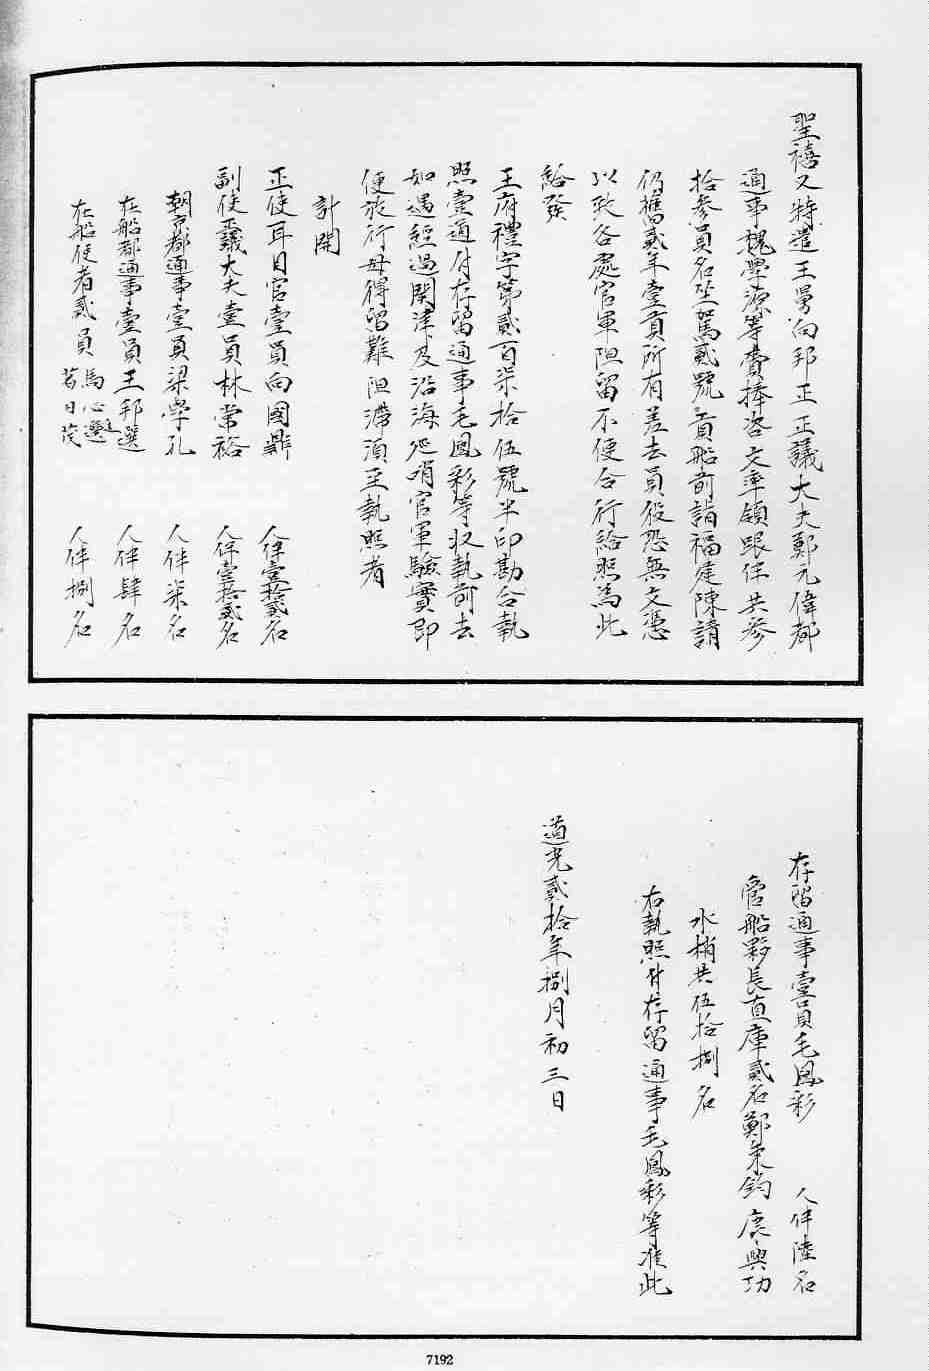 聖禧又特遣王舅向邦正正議大夫鄭元偉都
通事魏學源等賫捧咨文率領跟伴共參
拾參員名坐駕貳號貢船前詣福建陳請
仍舊貳年壹貢所有差去員役恐無文憑
以致各處官軍阻留不便合行給照爲此
給發
王府禮字第貳百柒拾伍號半印勘合執
照壹通付存留通事毛鳳彩等收執前去
如遇經過關津及沿海巡哨官軍驗實即
便放行毋得留難阻滯須至執照者
計開
正使耳目官壹員向國鼎 人伴壹拾貳名
副使正議大夫壹員林常裕 人伴壹拾貳名
朝京都通事壹員梁學孔 人伴柒名
在船都通事壹員王邦選 人伴肆名
在船使者貳員 馬心遷 日茂 人伴捌名
存留通事壹員毛鳳彩 人伴陸名
管船夥長直庫貳名鄭秉鈞 興功
水梢共伍拾捌名
右執照付存留通事毛鳳彩等准此
道光貳拾年捌月初三日
7192